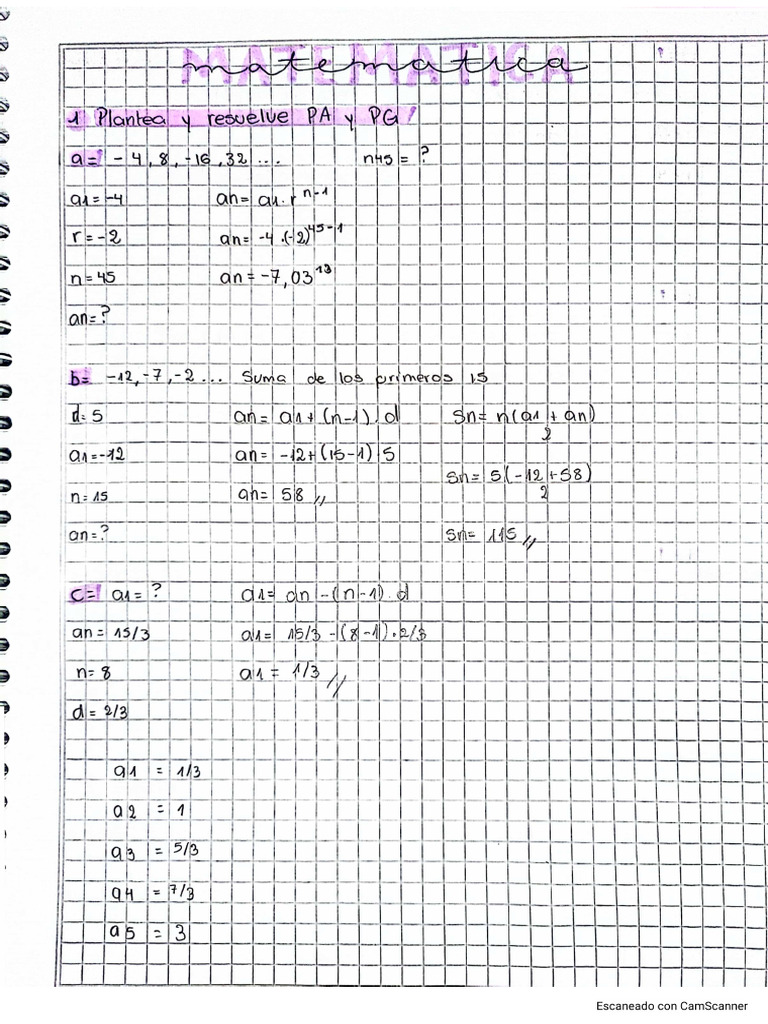 matematica
1 Plantea y resuelve PA y PG!
a= -4, 8, -16, 32 ... n45 = ?
a1=-4 an= a1.r^n-1
r=-2 an= -4.(-2)^45-1
n=45 an= -7,03^13
an=?
b= -12, -7, -2 ... Suma de los primeros 15
d=5 an= a1+(n-1).d Sn= n(a1 + an)
2
a1=-12 an= -12+(15-1).5
Sn= 5(-12+58)
2
n=15 an= 58 //
an=? Sn= 115 //
c= a1= ? a1= an -(n-1).d
an= 15/3 a1= 15/3 -(8-1).2/3
n=8 a1 = 1/3 //
d=2/3
a1 = 1/3
a2 = 1
a3 = 5/3
a4 = 7/3
a5 = 3
Escaneado con CamScanner